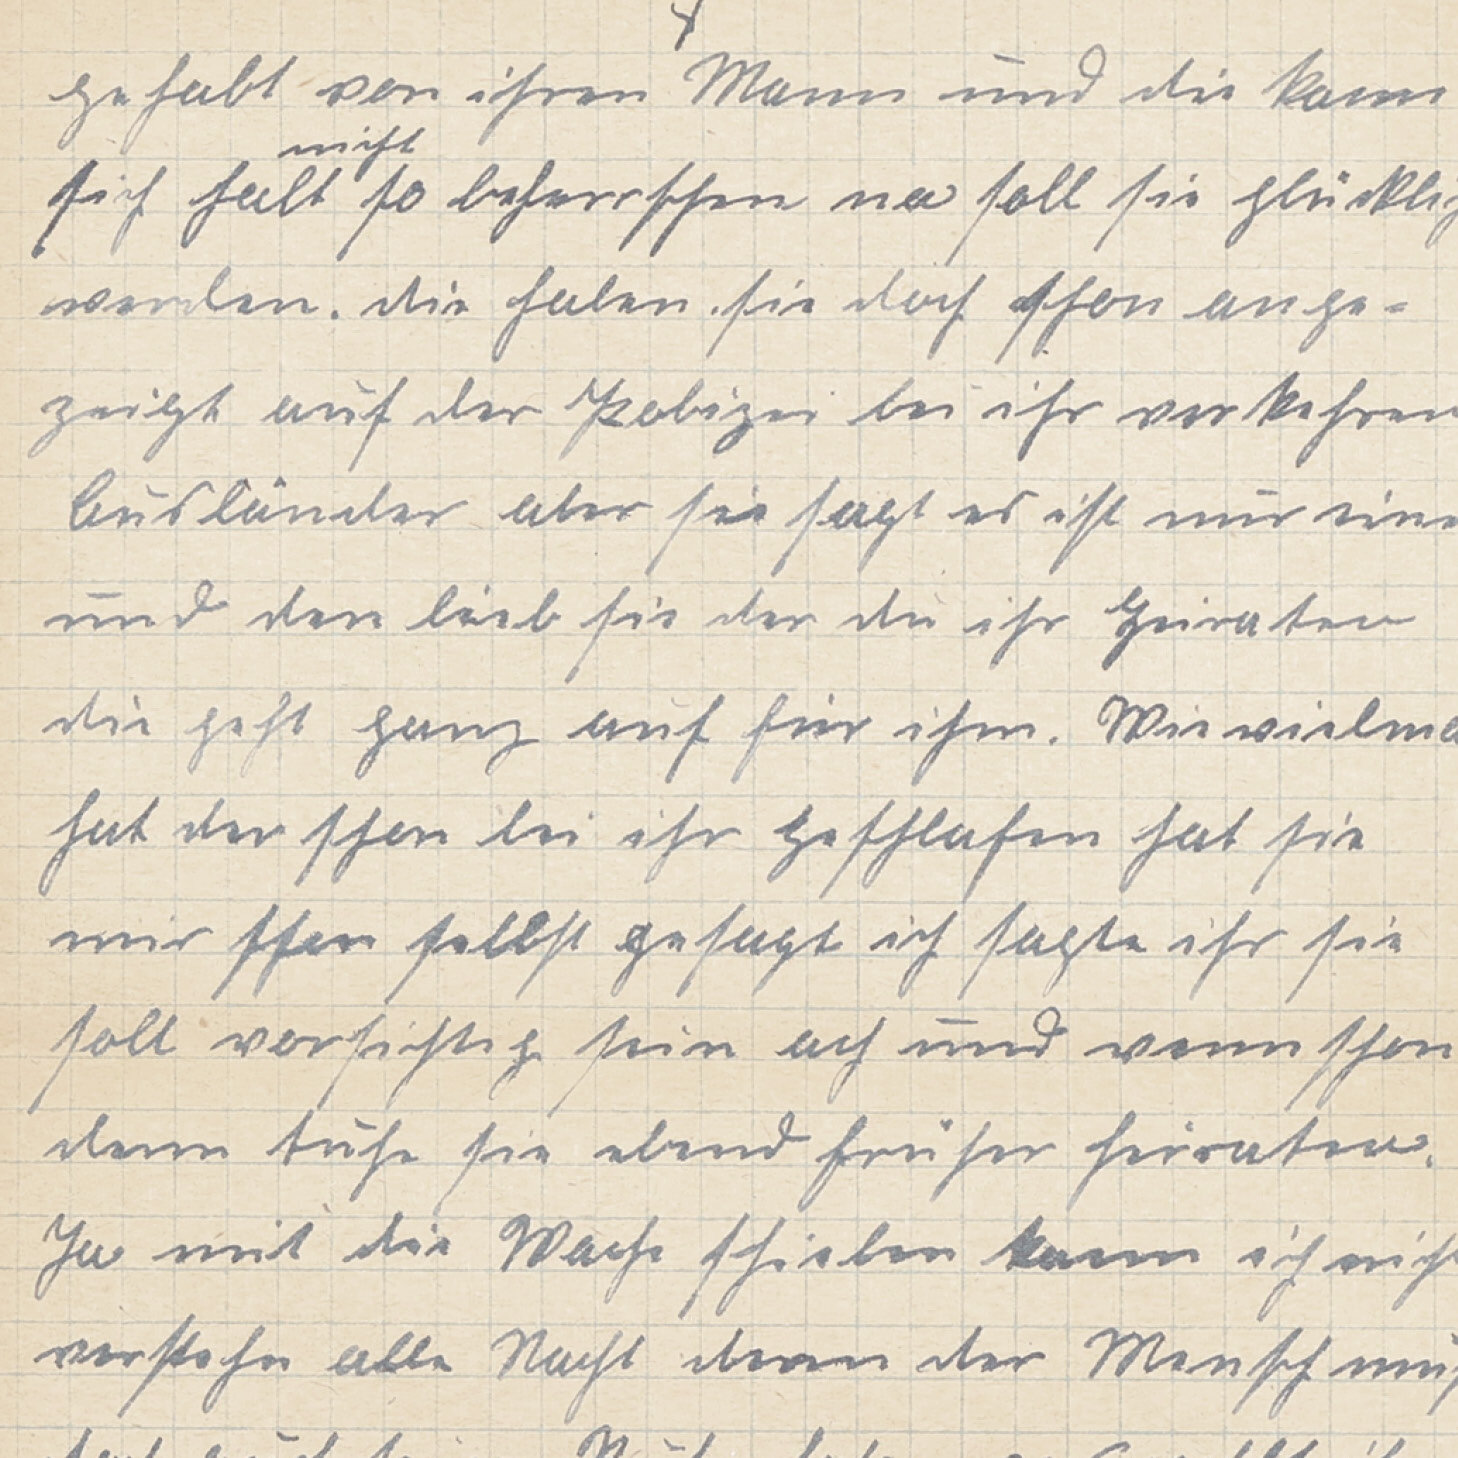 gehabt von ihren Mann und die kann
nicht
sich halt so beherrschen na soll sie glücklich
werden. die haben sie doch schon ange-
zeigt auf der Polizei bei ihr verkehren
Ausländer aber sie sagt es ist nur eine
und den lieb sie der du ihr Heiraten
die geht ganz auf für ihm. Wievielma
hat der schon bei ihr Geschlafen hat sie
mir schon selbst gesagt ich sagte ihr sie
soll vorsichtig sein ach und wenn schon
dann tuhe sie ebend früher heiraten.
Ja mit die Wache schieben kann ich nich
verstehn alle Nacht denn der Mensch muß